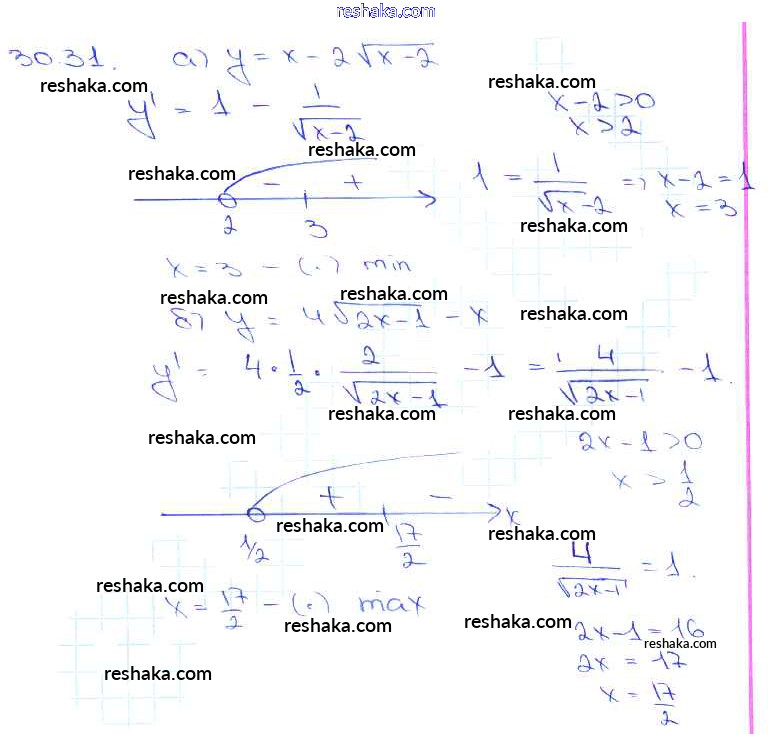 reshaka.com
30.31. а) y = x - 2√(x-2)
reshaka.com reshaka.com
y' = 1 - 1/√(x-2)
x-2>0
x>2
reshaka.com
reshaka.com
- +
2 3
1 = 1/√x-2 => x-2=1
x=3
reshaka.com
x=3 - (.) min
reshaka.com reshaka.com
б) y = 4√(2x-1) - x
reshaka.com
y' = 4·1/2·2/√(2x-1) - 1 = 4/√(2x-1) - 1.
reshaka.com reshaka.com
reshaka.com
2x-1>0
x > 1/2
+ - x
reshaka.com
1/2 17/2
4/√(2x-1) = 1.
reshaka.com reshaka.com
x = 17/2 - (.) max
reshaka.com reshaka.com
2x-1=16
reshaka.com
2x = 17
x = 17/2
reshaka.com